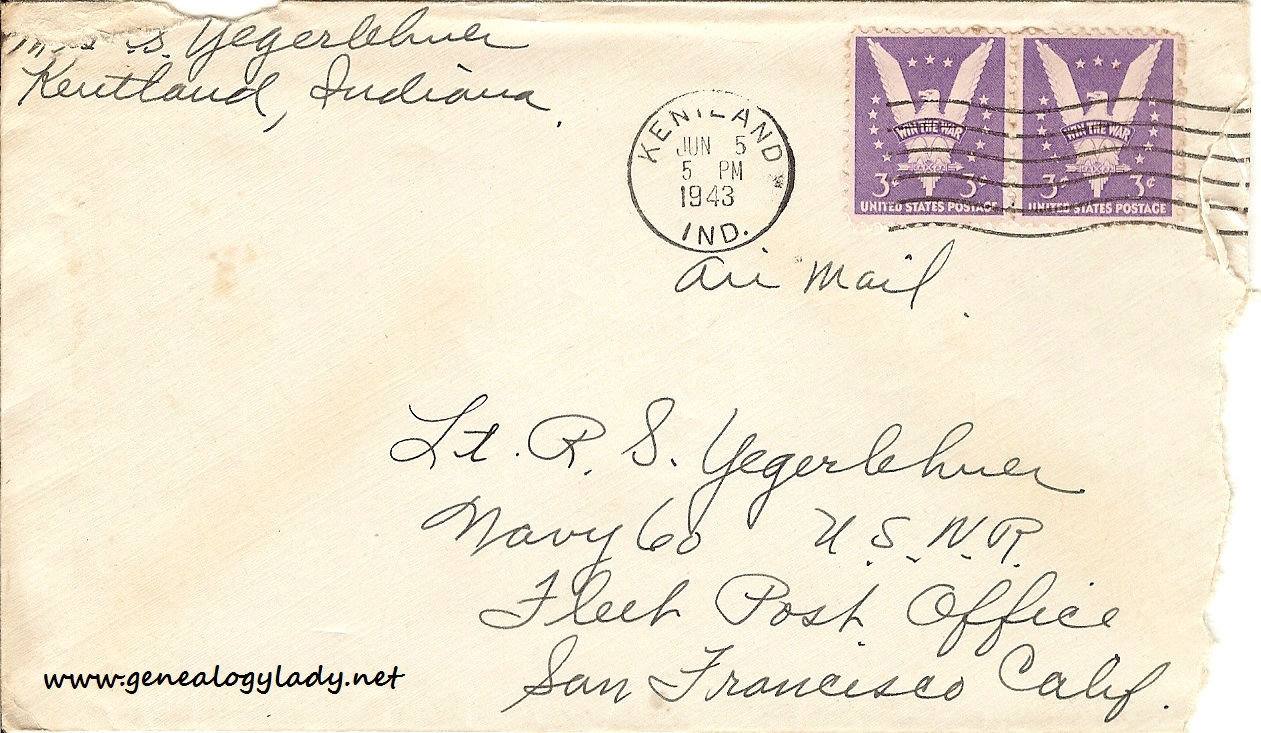 Yegerlehner
Kentland, Indiana.
KENTLAND
JUN 5
5 PM
1943
IND.
WIN THE WAR
3¢ 3¢
UNITED STATES POSTAGE
WIN THE WAR
3¢ 3¢
UNITED STATES POSTAGE
Air Mail.
Lt. R. S. Yegerlehner
Navy 60 U.S.N.R.
Fleet Post Office
San Francisco Calif.
www.genealogylady.net